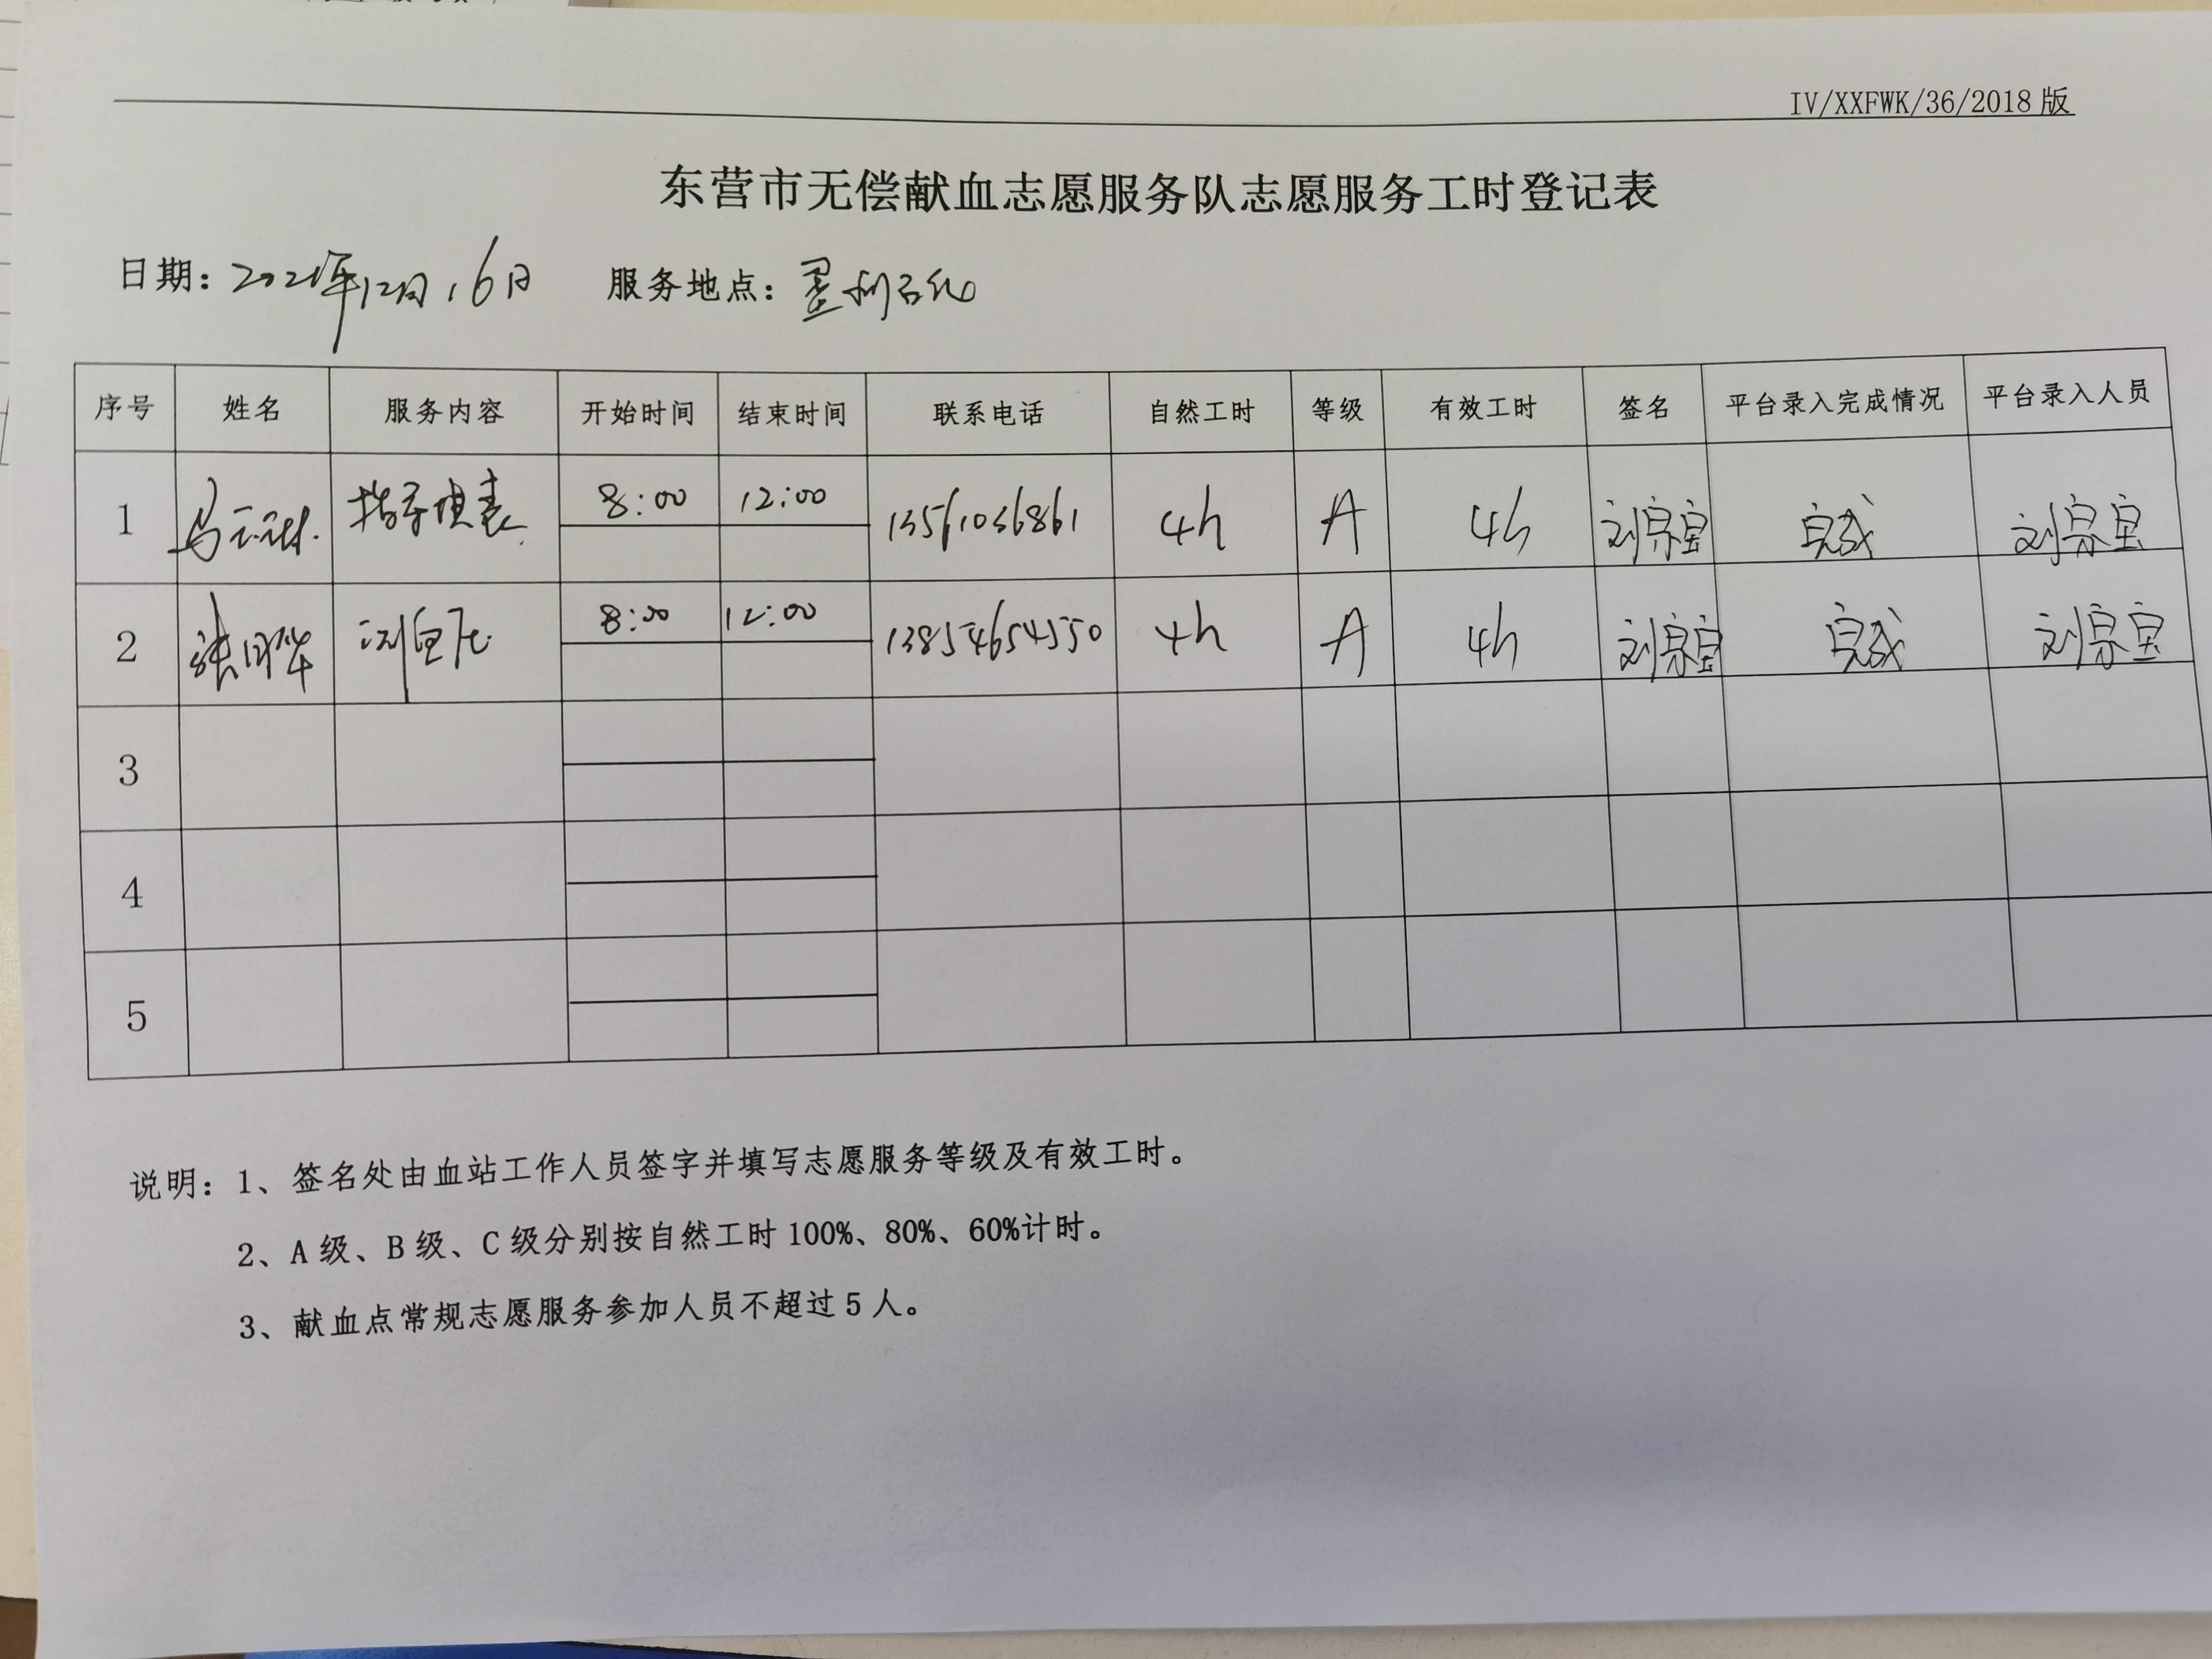 IV/XXFWK/36/2018 版
东营市无偿献血志愿服务队志愿服务工时登记表
日期：2021年12月16日 服务地点：垦利石化
序号 姓名 服务内容 开始时间 结束时间 联系电话 自然工时 等级 有效工时 签名 平台录入完成情况 平台录入人员
1 马 指导填表 8:00 12:00 13561036861 4h A 4h 刘宗宝 完成 刘宗宝
2 张 测血压 8:00 12:00 13854654550 4h A 4h 刘宗宝 完成 刘宗宝
3
4
5
说明：1、签名处由血站工作人员签字并填写志愿服务等级及有效工时。
2、A 级、B 级、C 级分别按自然工时 100%、80%、60%计时。
3、献血点常规志愿服务参加人员不超过 5 人。